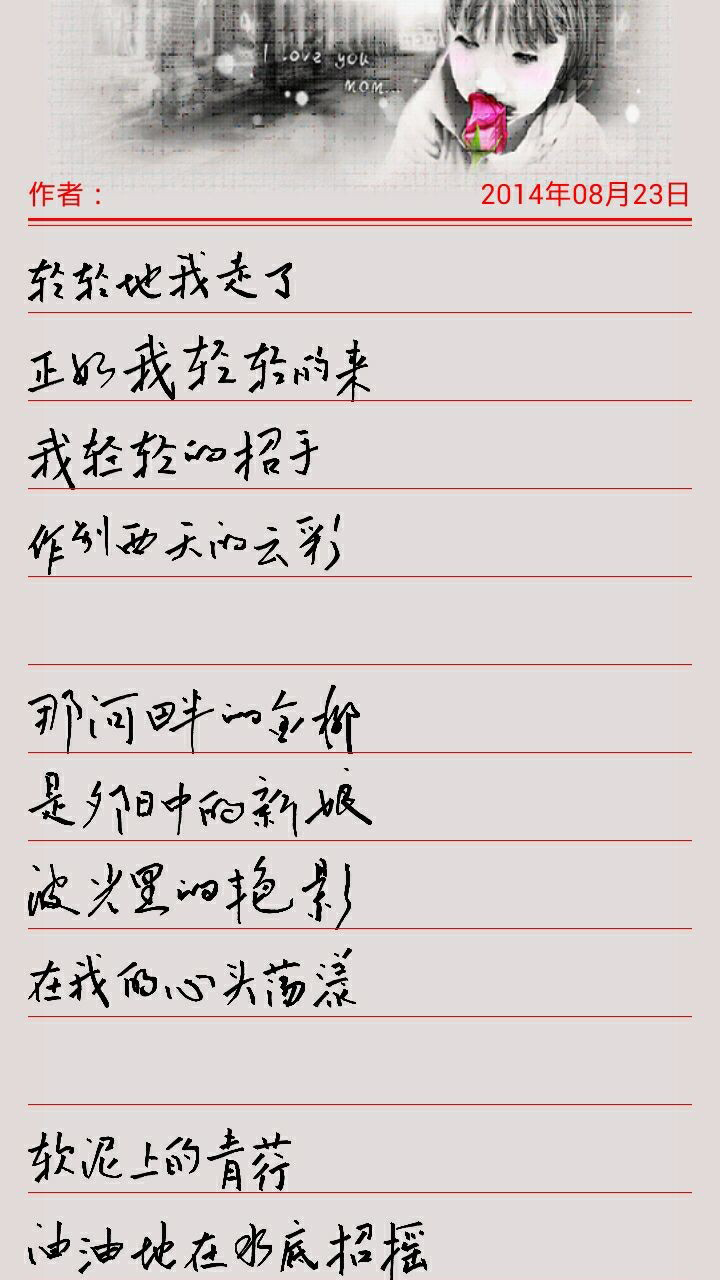 I Love you
mom...
作者：
2014年08月23日
轻轻地我走了
正如我轻轻的来
我轻轻的招手
作别西天的云彩
那河畔的金柳
是夕阳中的新娘
波光里的艳影
在我的心头荡漾
软泥上的青荇
油油地在水底招摇